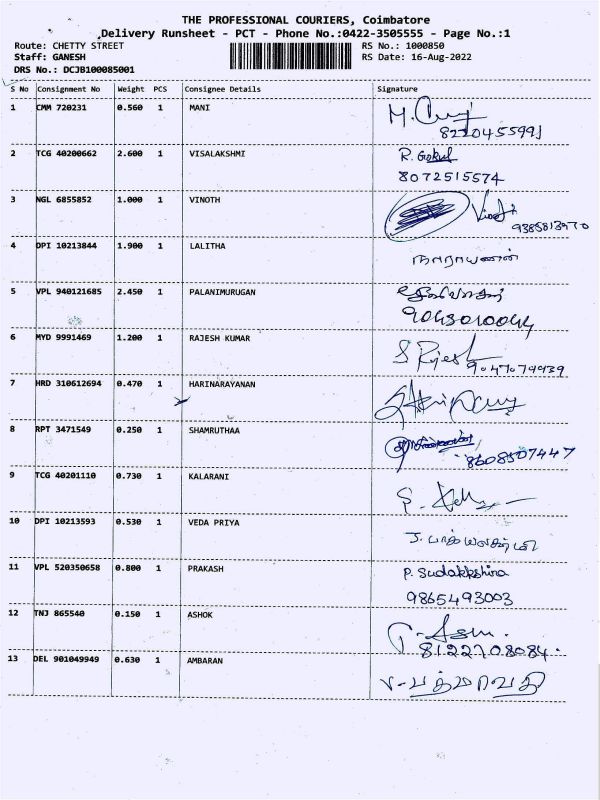 THE PROFESSIONAL COURIERS, Coimbatore
Delivery Runsheet - PCT - Phone No.:0422-3505555 - Page No.:1
Route: CHETTY STREET RS No.: 1000850
Staff: GANESH RS Date: 16-Aug-2022
DRS No.: DCJB100085001
S No Consignment No Weight PCS Consignee Details Signature
1 CMM 720231 0.560 1 MANI
2 TCG 40200662 2.600 1 VISALAKSHMI R. Gokul
8072515574
3 NGL 6855852 1.000 1 VINOTH
9385813970
4 DPI 10213844 1.900 1 LALITHA நாராயணன்
5 VPL 940121685 2.450 1 PALANIMURUGAN
9043010044
6 MYD 9991469 1.200 1 RAJESH KUMAR S Rajesh
9047079939
7 HRD 310612694 0.470 1 HARINARAYANAN
8 RPT 3471549 0.250 1 SHAMRUTHAA
8608507447
9 TCG 40201110 0.730 1 KALARANI
10 DPI 10213593 0.530 1 VEDA PRIYA
11 VPL 520350658 0.800 1 PRAKASH P. Sudakkshina
9865493003
12 TNJ 865540 0.150 1 ASHOK
8122708084.
13 DEL 901049949 0.630 1 AMBARAN V-பத்மாவதி